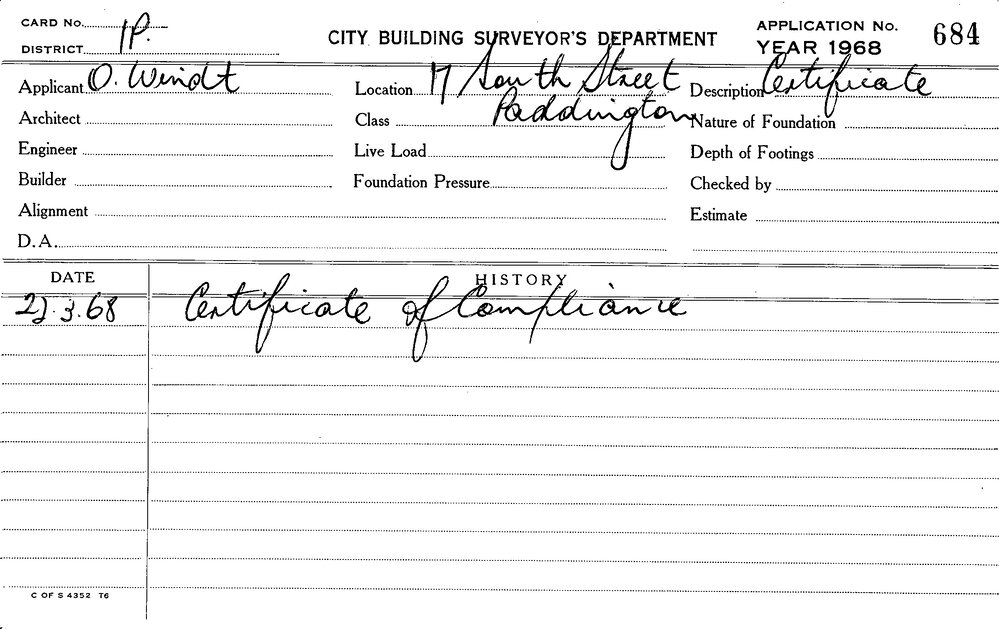 CARD No. 1P.
DISTRICT
CITY BUILDING SURVEYOR'S DEPARTMENT
APPLICATION No. 684
YEAR 1968
Applicant O. Windt
Location 17 South Street
Paddington
Description Certificate
Architect
Class
Nature of Foundation
Engineer
Live Load
Depth of Footings
Builder
Foundation Pressure
Checked by
Alignment
Estimate
D.A.
DATE
HISTORY
.3.68 Certificate of Compliance
C OF S 4352 T6